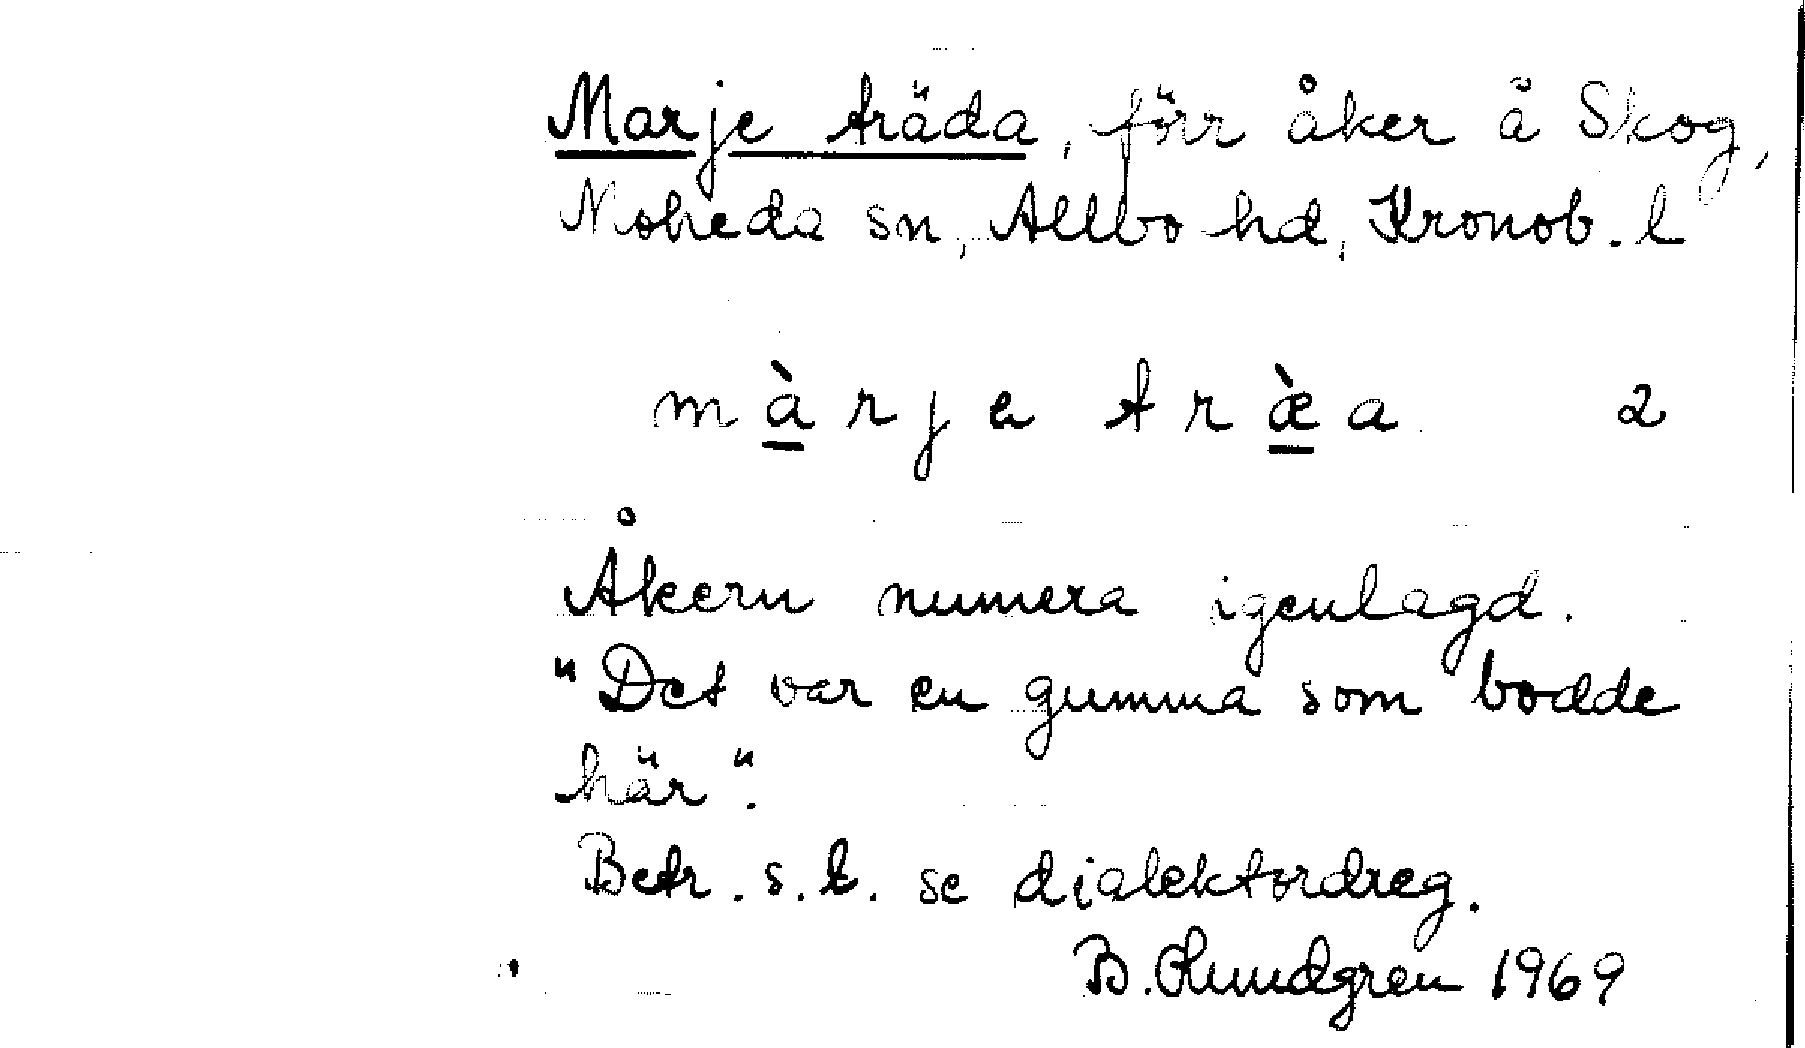 Marje träda, förr åker å Skog,
Moheda sn, Allbo hd, Kronob. l
màrje træ̀a 2
Åkern numera igenlagd.
"Det var en gumma som bodde
här".
Betr. s.l. se dialektordreg.
B. Lundgren 1969